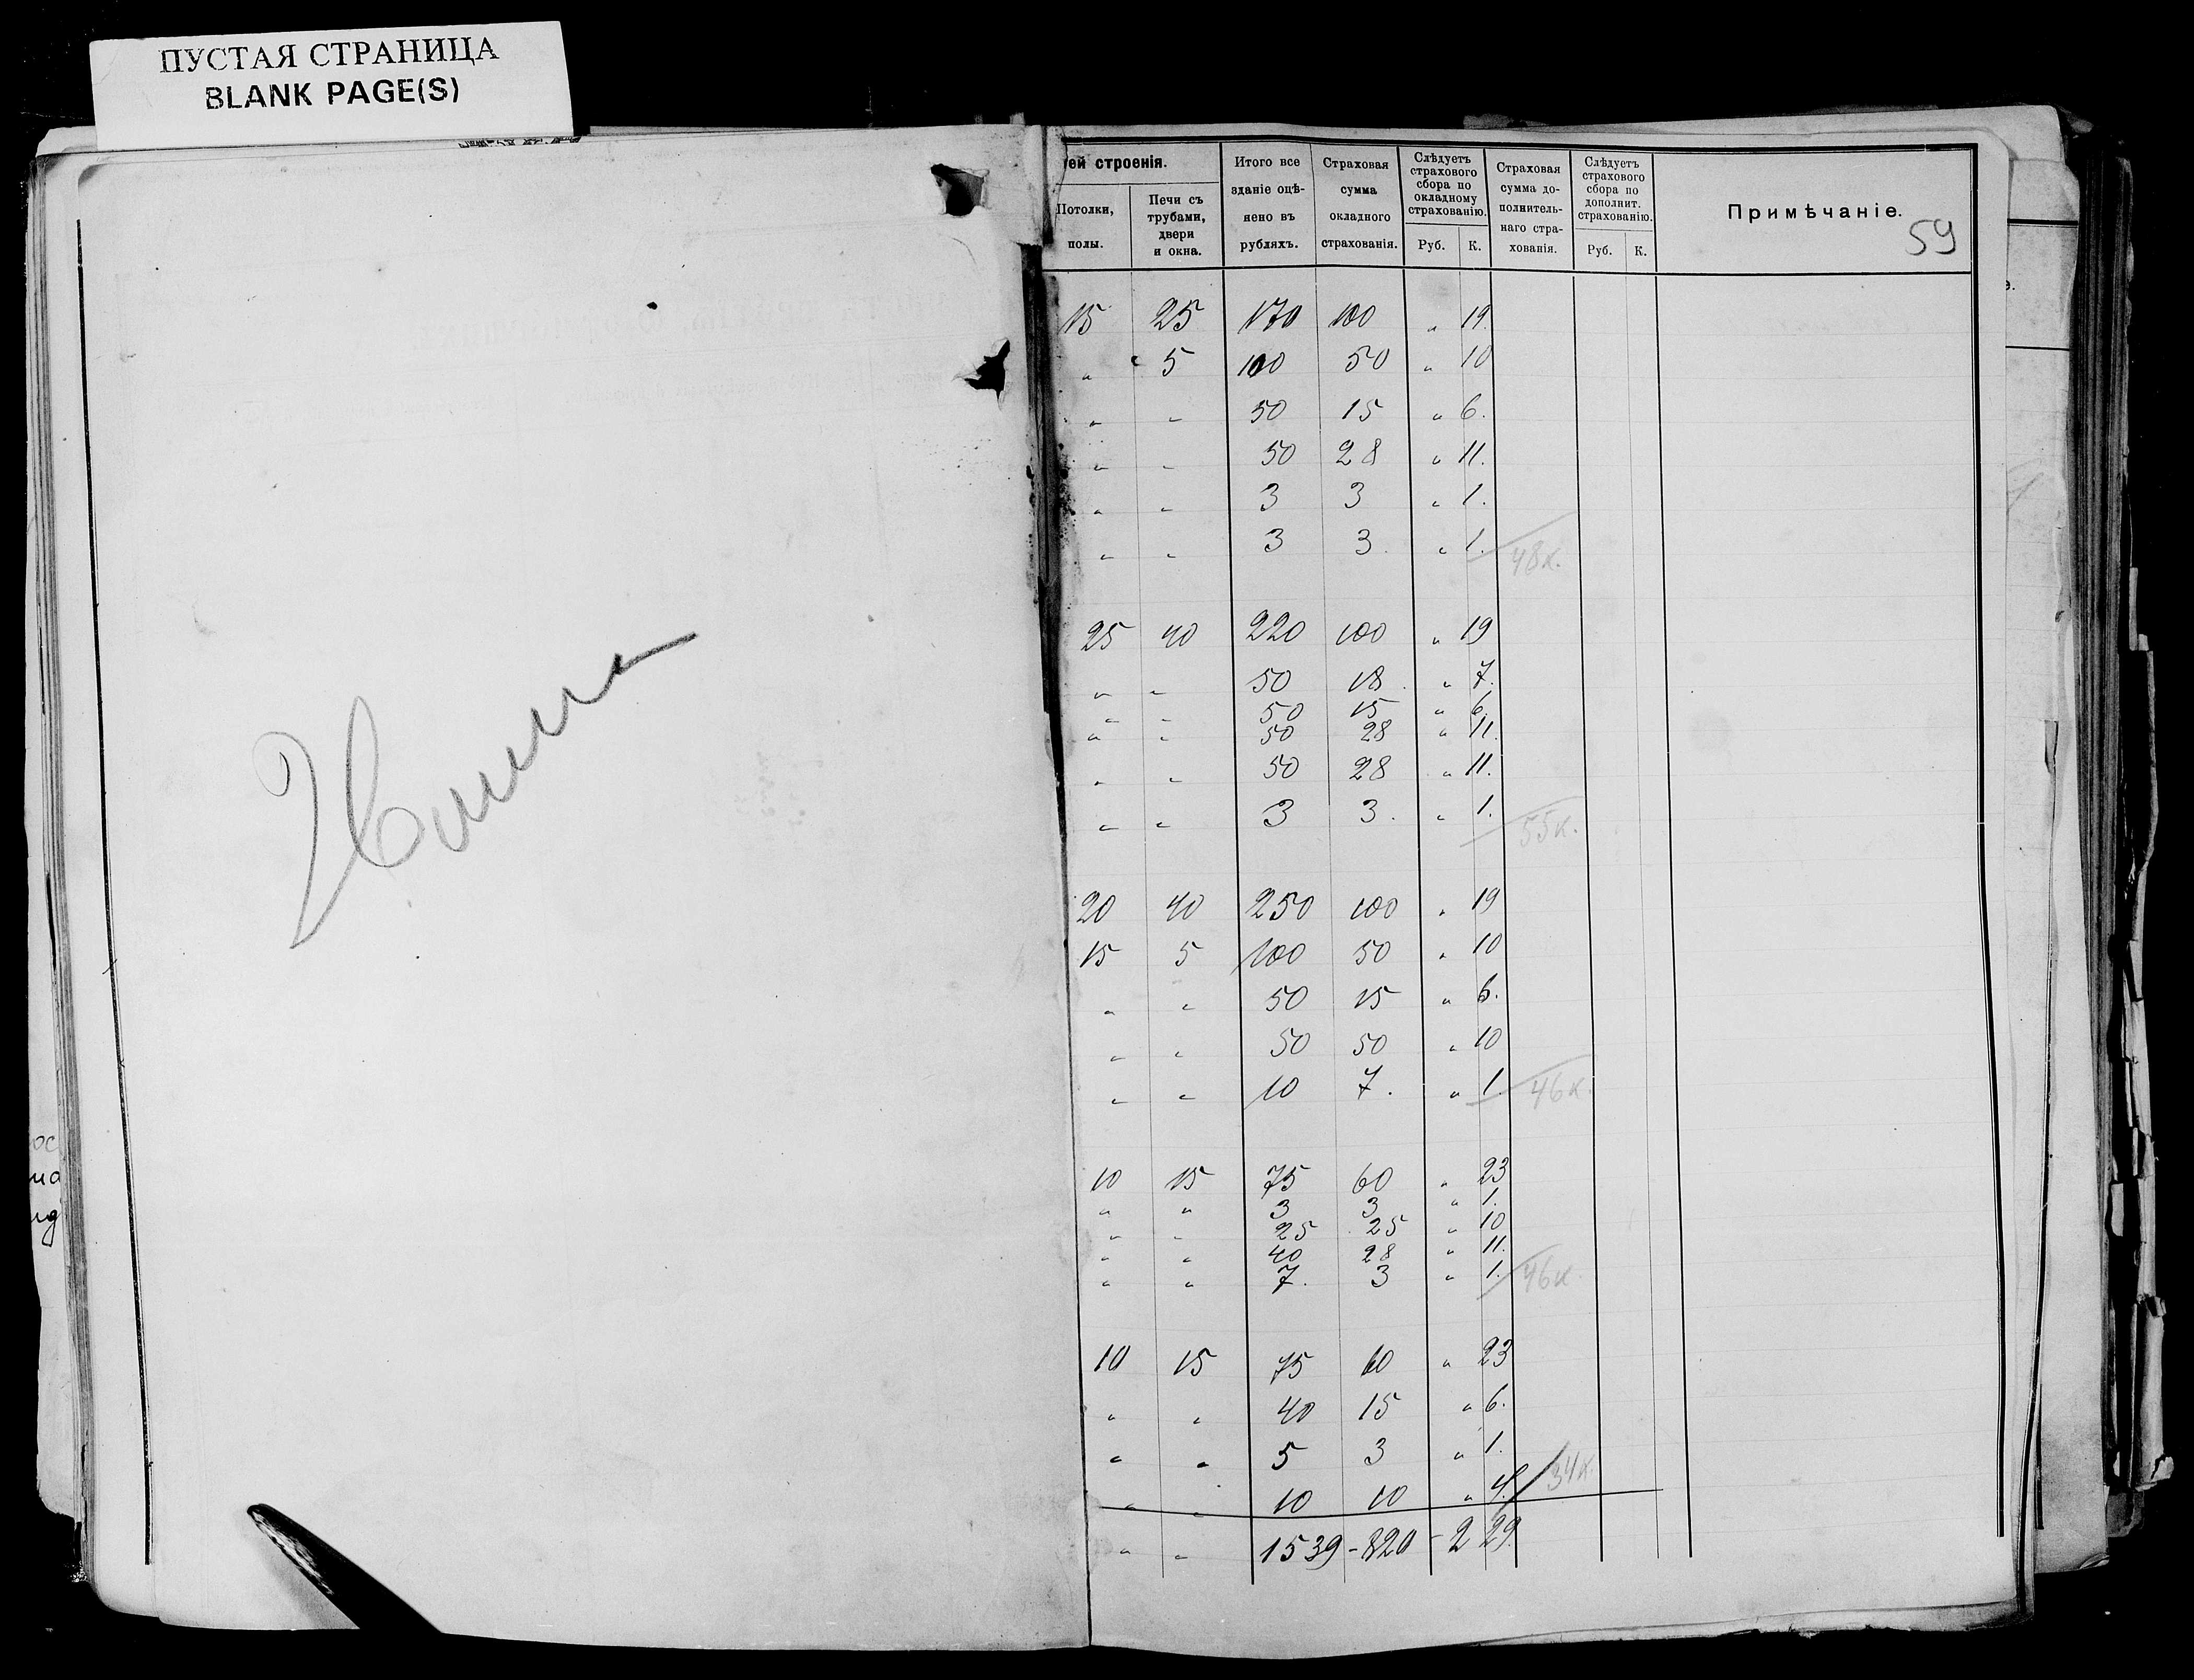 ПУСТАЯ СТРАНИЦА
BLANK PAGE(S)
ей строенія.
Потолки, полы.
Печи съ трубами, двери и окна.
Итого все зданіе оцѣ- нено въ рубляхъ.
Страховая сумма окладного страхованія.
Слѣдуетъ страхового сбора по окладному страхованію.
Руб. К.
Страховая сумма до- полнитель- наго стра- хованія.
Слѣдуетъ страхового сбора по дополнит. страхованію.
Руб. К.
Примѣчаніе.
59
15 25 170 100 " 19.
" 5 100 50 " 10
" " 50 15 " 6.
" " 50 28 " 11.
" " 3 3 " 1.
" " 3 3. " 1. 48к.
25 40 220 100 " 19
" " 50 18. " 7.
" " 50 15 " 6.
" " 50 28 " 11.
" " 50 28 " 11.
" " 3 3. " 1. 55к.
20 40 250 100 " 19
15 5 100 50 " 10
" " 50 15 " 6.
" " 50 50 " 10
" " 10 7. " 1. 46к.
10 15 75 60 " 23
" " 3 3 " 1.
" " 25 25 " 10
" " 40 28 " 11.
" " 7. 3 " 1. 46к.
10 15 75 60 " 23
" " 40 15 " 6.
" " 5 3 " 1.
" " 10 10 " 4. 34к.
" " 1539 - 820 - 2 29.